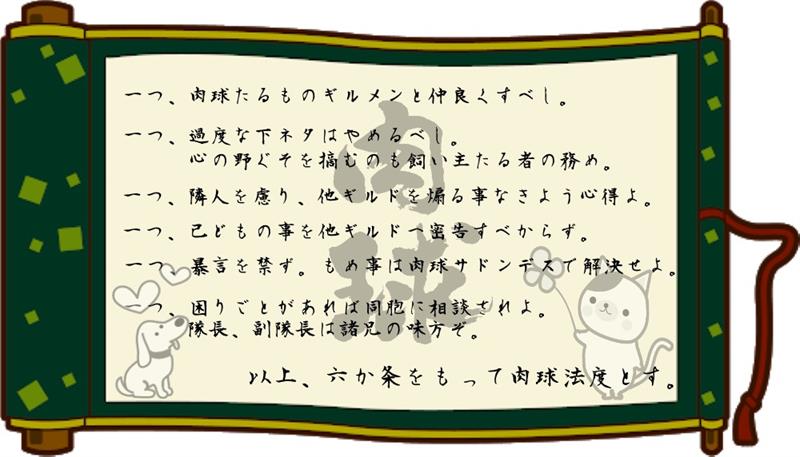 一つ、肉球たるものギルメンと仲良くすべし。
一つ、過度な下ネタはやめるべし。
心の野ぐそを摘むのも飼い主たる者の務め。
一つ、隣人を慮り、他ギルドを煽る事なきよう心得よ。
一つ、己どもの事を他ギルドへ密告すべからず。
一つ、暴言を禁ず。もめ事は肉球サドンデスで解決せよ。
一つ、困りごとがあれば同胞に相談されよ。
隊長、副隊長は諸兄の味方ぞ。
以上、六か条をもって肉球法度とす。
肉球